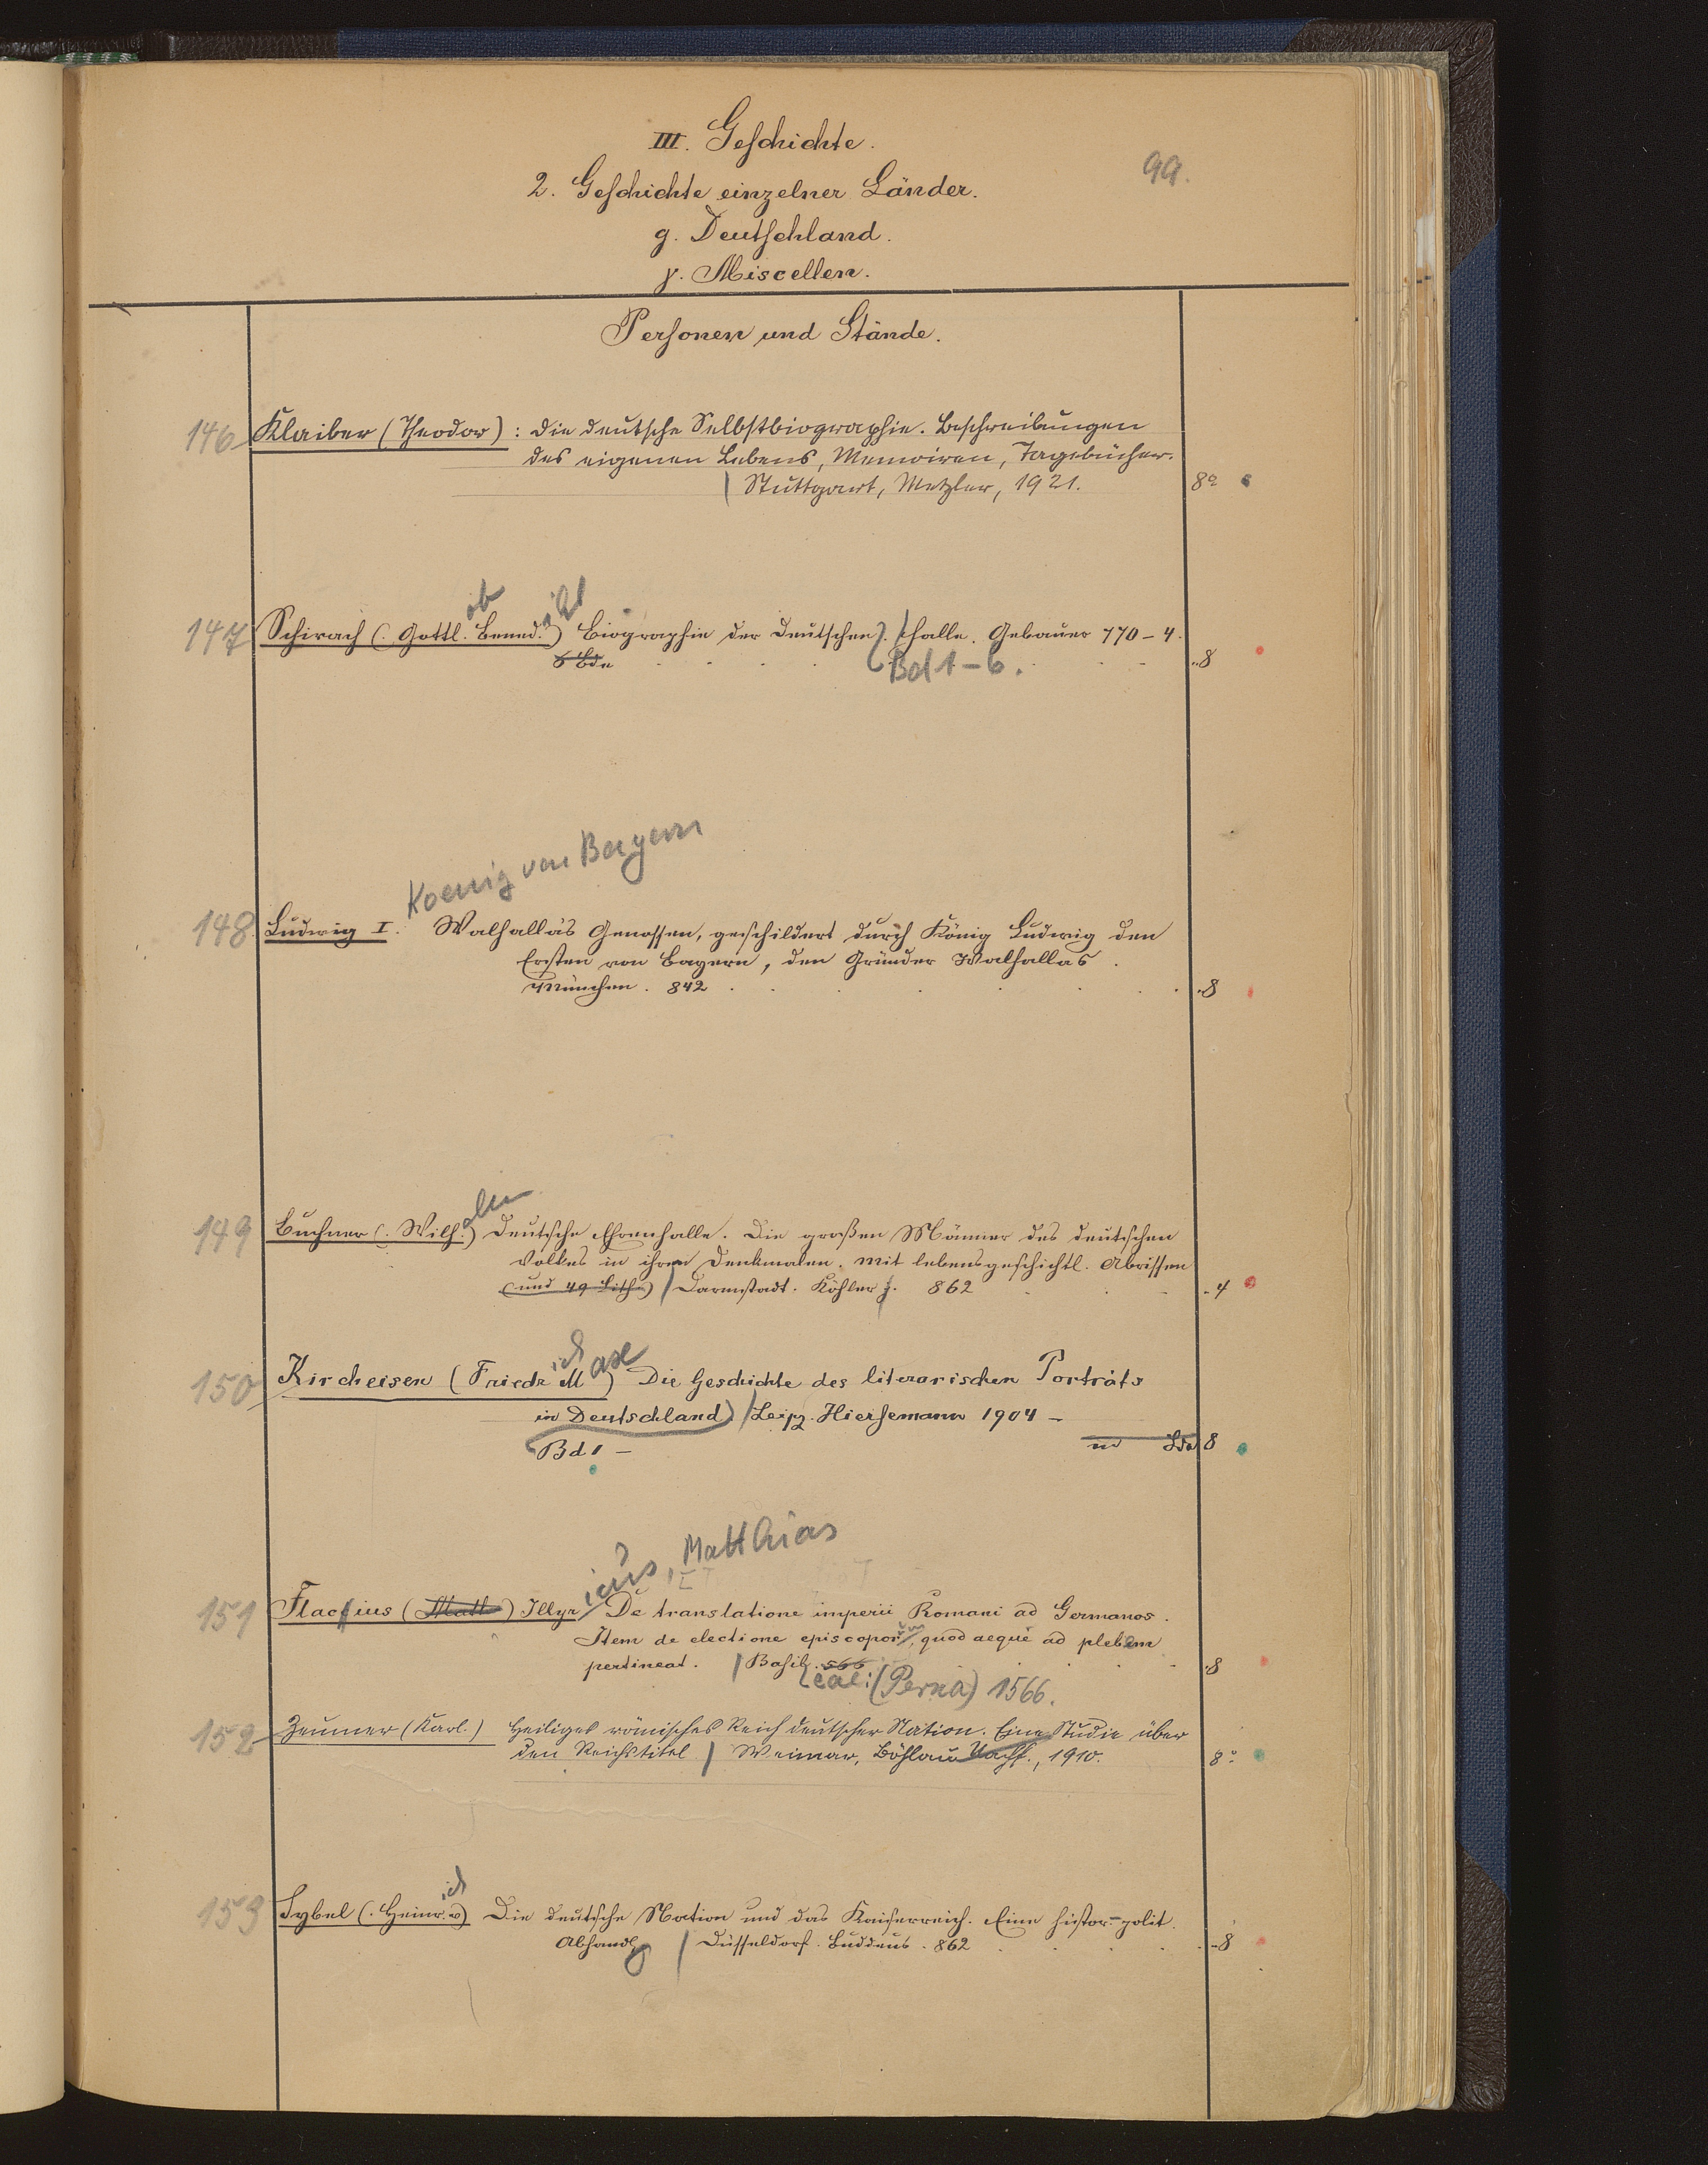 III. Geschichte.
99.
2. Geschichte einzelner Länder.
g. Deutschland.
γ. Miscellen.
Personen und Stände.
146 Klaiber (Theodor): Die deutsche Selbstbiographie. Beschreibungen
des eigenen Lebens, Memoiren, Tagebücher.
Stuttgart, Metzler, 1921. 8º
ob icht
147 Schirach (. Gottl. Bened.) Biographie der Deutschen. Halle. Gebauer 770-4.
6 Bde Bd 1-6. 8
Koenig von Bayern
148. Ludwig I. Walhalla's Genossen, geschildert durch König Ludwig den
Ersten von Bayern, den Gründer Walhallas.
München. 842 8
elm
149 Buchner (. Wilh.) Deutsche Ehrenhalle. Die großen Männer des deutschen
Volkes in ihren Denkmalen. Mit lebensgeschichtl. Abrissen
(und 49 Lith.) Darmstadt. Köhler j. 862 4
ich ax
150 Kircheisen (Friedr M) Die Geschichte des literarischen Porträts
in Deutschland) Leipz. Hiersemann 1904 -
Bd 1 - in Bdn 8
icus, Matthias
151 Flacius (Matth) Illyr De translatione imperii Romani ad Germanos.
Item de electione episcopor, quod aeque ad plebem
pertineat. Basil. 566 8
eae: (Perna) 1566.
152 Zeumer (Karl.) Heiliges römisches Reich deutscher Nation. Eine Studie über
den Reichstitel Weimar, Böhlau Nachf., 1910. 8º
ich
153 Sybel (. Heinr. v) Die deutsche Nation und das Kaiserreich. Eine histor.-polit.
Abhandlg Düsseldorf. Buddeus. 862 8